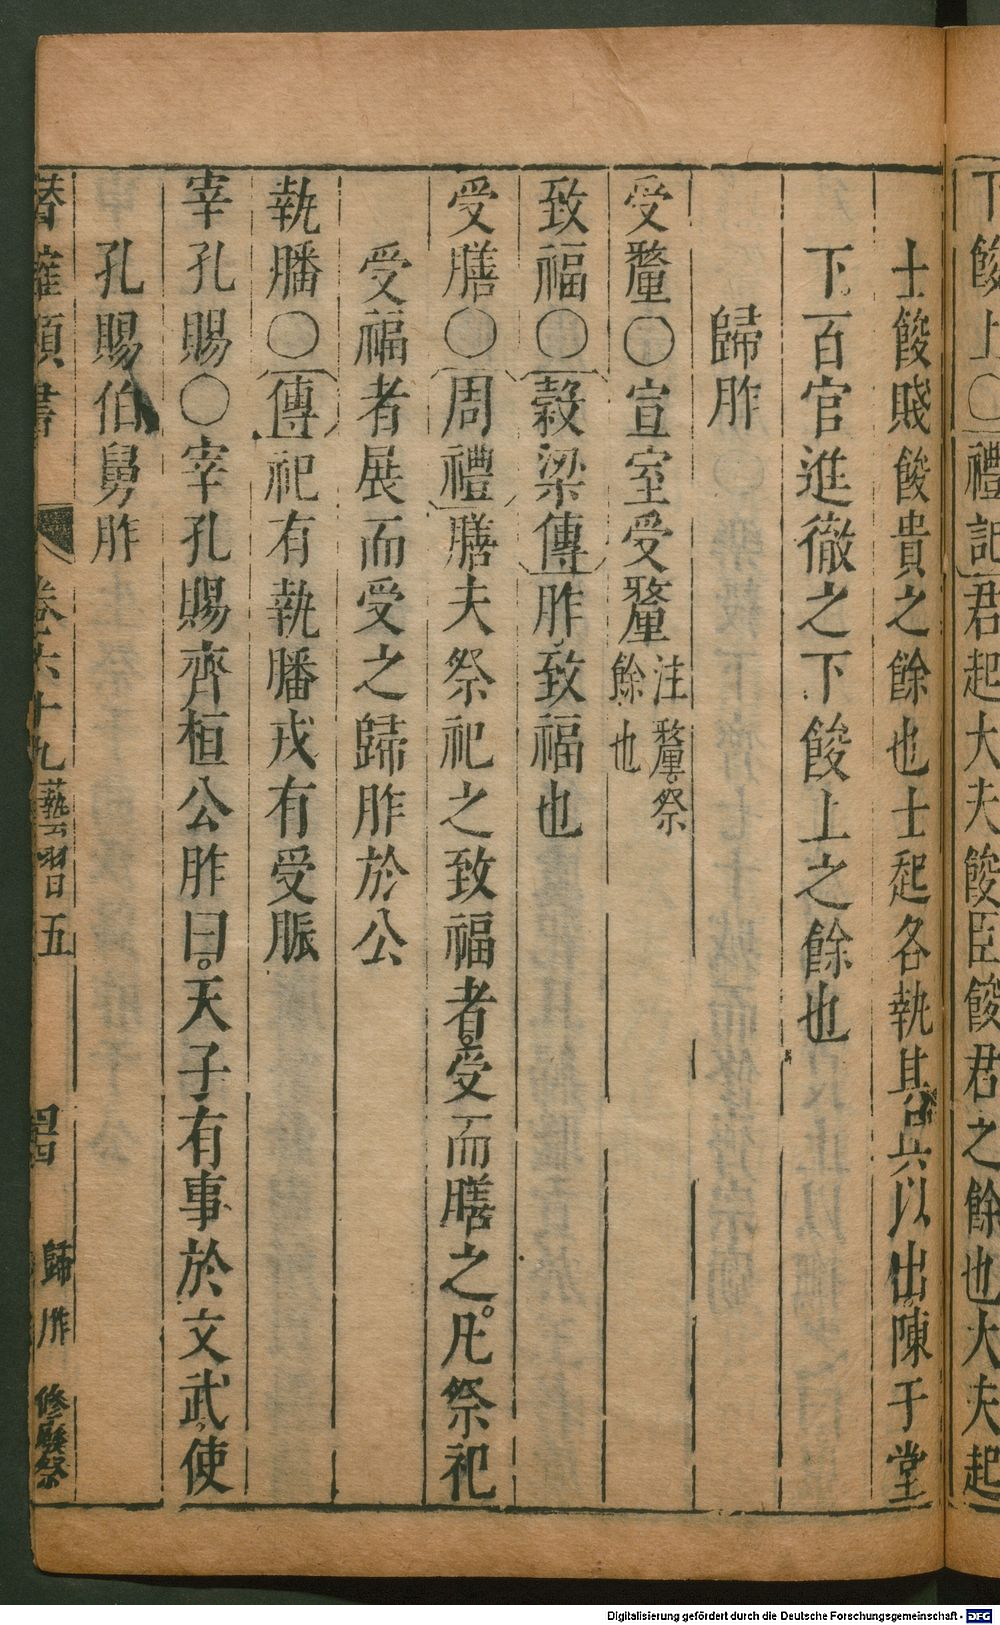 下餕上○禮記君起大夫餕臣餕君之餘也大夫起
士餕賤餕貴之餘也士起各執其具以出陳于堂
下百官進徹之下餕上之餘也
歸胙
受釐○宣室受釐注釐祭餘也
致福○穀梁傳胙致福也
受膳○周禮膳夫祭祀之致福者受而膳之凡祭祀
受福者展而受之歸胙於公
執膰○傳祀有執膰戎有受脤
宰孔賜○宰孔賜齊桓公胙曰天子有事於文武使
孔賜伯舅胙
潛確類書 卷六十九藝習五 四 歸胙
Digitalisierung gefördert durch die Deutsche Forschungsgemeinschaft - DFG